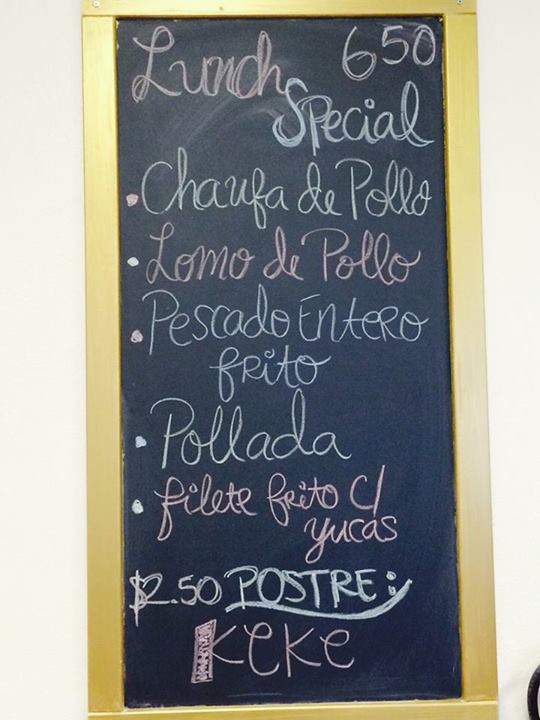 Lunch 650
Special
• Chaufa de Pollo
• Lomo de Pollo
• Pescado Entero
frito
• Pollada
• filete frito c/
yucas
$2.50 POSTRE:
KEKE